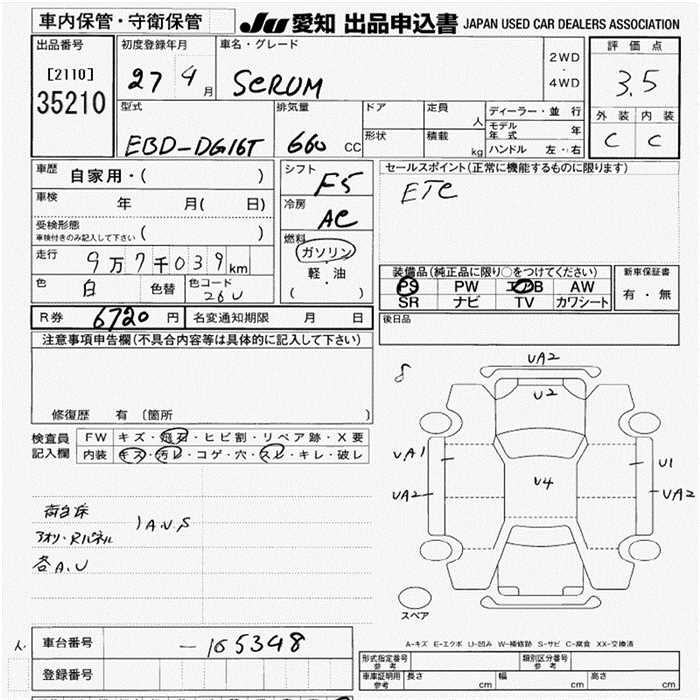 車内保管・守衛保管
JU 愛知 出品申込書 JAPAN USED CAR DEALERS ASSOCIATION
出品番号 初度登録年月 車名・グレード 2WD ・ 4WD 評価点
[2110]
35210
27 4 月 SCRUM 3.5
型式 排気量 ドア 定員 人 ディーラー・並 行 外装 内装
EBD-DG16T 660 CC 形状 積載 kg モデル年式 年 C C
ハンドル 左・右
車歴 自家用・( ) シフト F5 セールスポイント(正常に機能するものに限ります)
車検 年 月( 日) 冷房 AC ETC
受検形態
車検付きのみ記入して下さい ( )
燃料 ガソリン
軽・油
( )
走行 9万7千039km
色 白 色替 色コード 26U
装備品(純正品に限り○をつけてください) 新車保証書
PS PW エアB AW 有・無
SR ナビ TV カワシート
R券 6720 円 名変通知期限 月 日 後日品
注意事項申告欄(不具合内容等は具体的に記入して下さい)
修復歴 有 〔箇所
検査員 FW キズ・飛石・ヒビ割・リペア跡・X要
記入欄 内装 キズ・汚レ・コゲ・穴・スレ・キレ・破レ
8
UA2
U2
UA1 U1
U4
UA2 UA2
荷台床
アオリ・Rパネル
1A.U.S
各A.U
スペア
A-キズ E-エクボ U-凹み W-補修跡 S-サビ C-腐食 XX-交換済
車台番号 -165348
登録番号
形式指定番号 参考 類別区分番号 参考
車庫証明用 参考 長さ cm 幅 cm 高さ cm